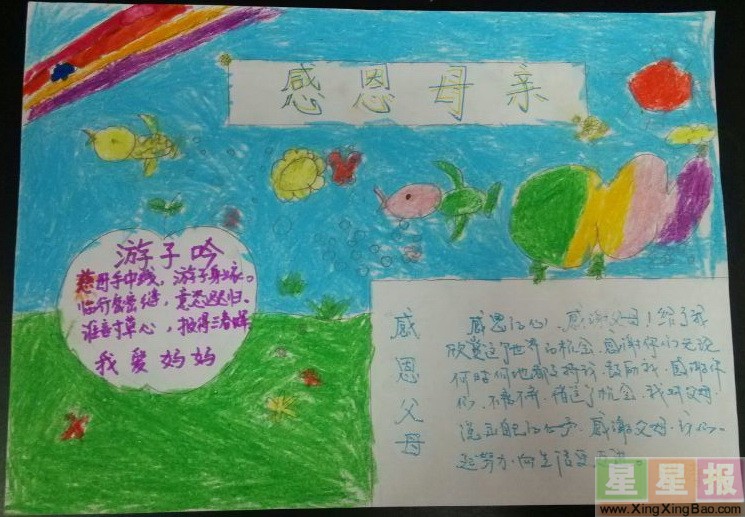 感恩母亲
游子吟
慈母手中线，游子身上衣。
临行密密缝，意恐迟迟归。
谁言寸草心，报得三春晖
我爱妈妈
感恩父母
感恩的心！感谢父母！给了我
欣赏这了世界的机会，感谢你们无论
何时何地都支持我，鼓励我，感谢你
们，不
借这了机会，我对父母
说出自己的心声，感谢父母，
努力，向生活
星星报
www.XingXingBao.com